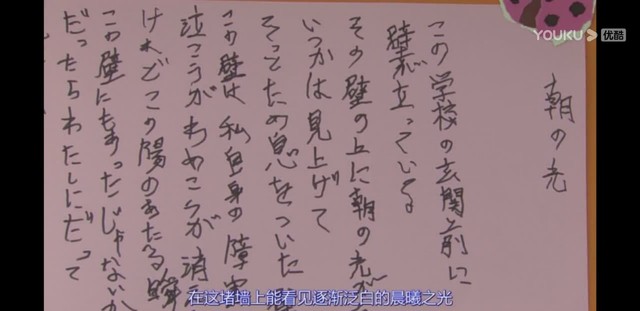 YOUKU 优酷
朝の光
この学校の玄関前に
壁が立っている
その壁の上に朝の光が
いつかは見上げて
そっとため息をついた
この壁は私自身の障
泣こうがわめこうが消
けれどこの陽のあたる瞬
この壁にもあったじゃないか
だったらわたしにだって
在这堵墙上能看见逐渐泛白的晨曦之光